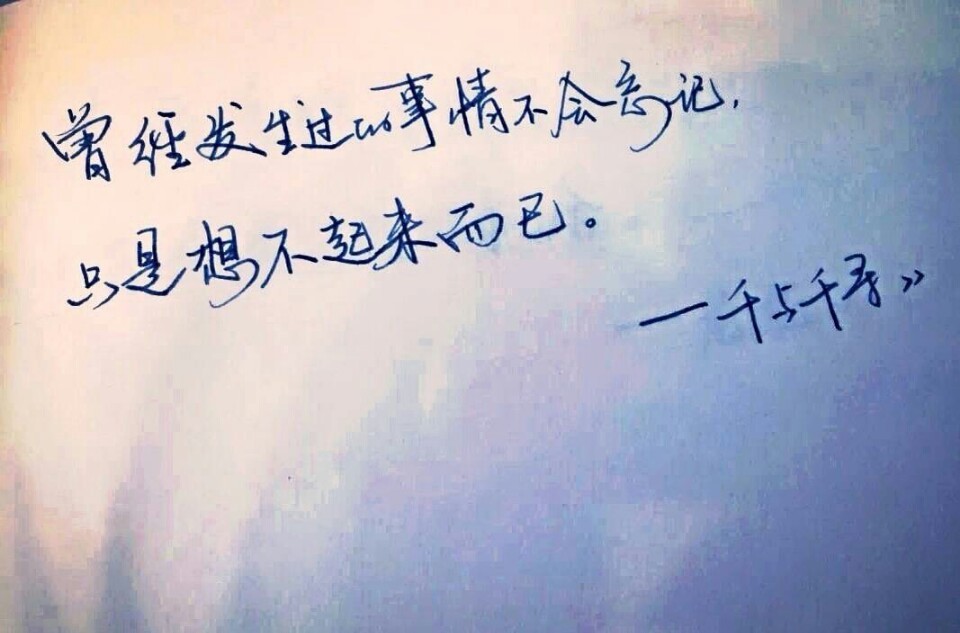 曾经发生过的事情不会忘记,
只是想不起来而已。
一千与千寻》